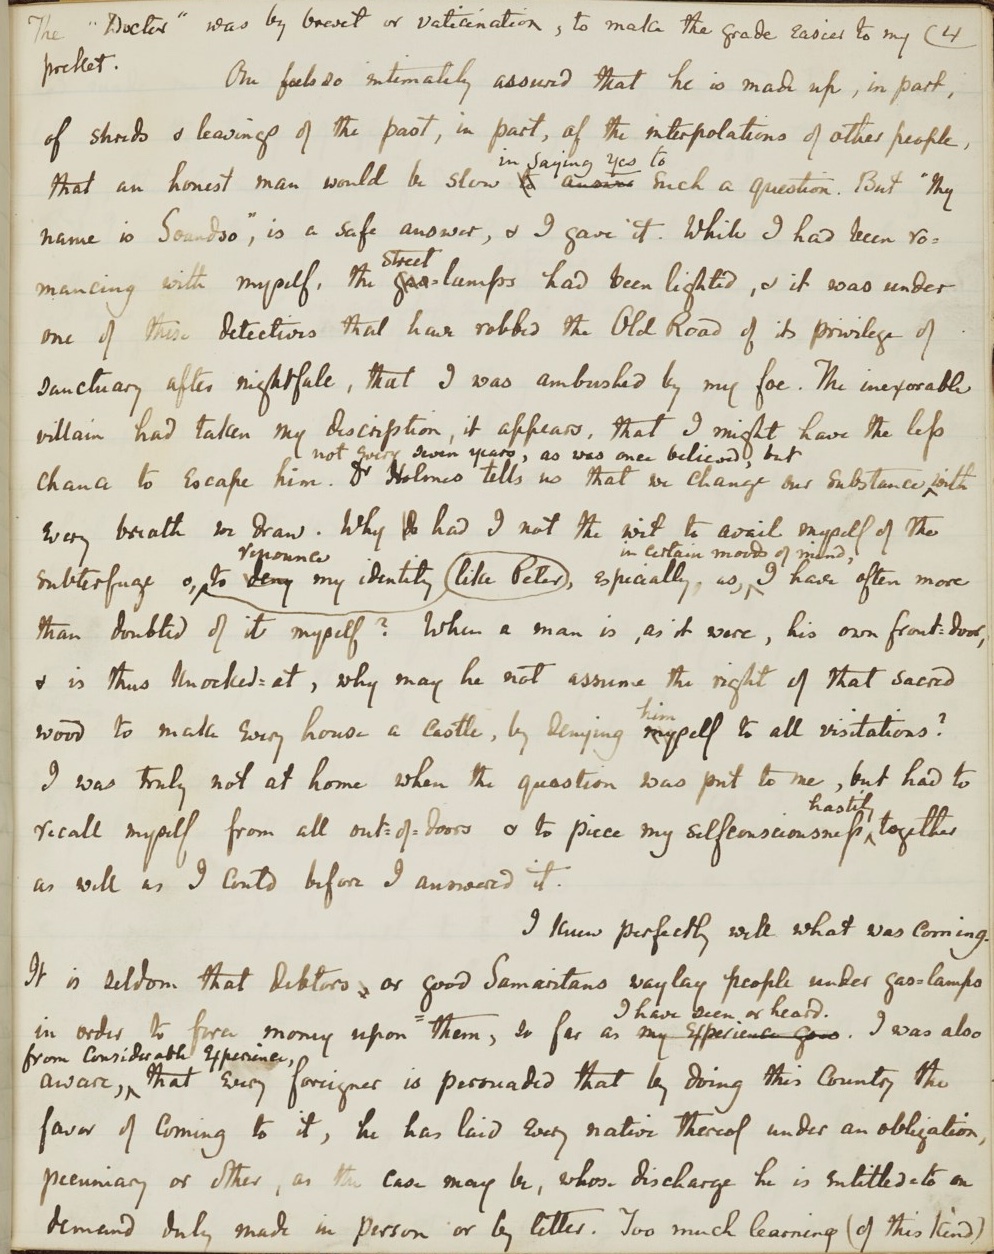 The "Doctor" was by brevet or vaticination, to make the grade easier to my (4
pocket.
One feels so intimately assured that he is made up, in part,
of shreds & leavings of the past, in part, of the interpolations of other people,
in saying yes to
that an honest man would be slow to answer such a question. But "My
name is Soandso", is a safe answer, & I gave it. While I had been ro=
street
mancing with myself, the gas=lamps had been lighted, & it was under
one of these detectives that have robbed the Old Road of its privilege of
sanctuary after nightfall, that I was ambushed by my foe. The inexorable
villain had taken my discription, it appears, that I might have the less
not every seven years, as was once believed, but
chance to escape him. Dr Holmes tells us that we change our substance, with
every breath we draw. Why had I not the wit to avail myself of the
renounce
in certain moods of mind,
subterfuge &, to deny my identity like Peter, especially, as, I have often more
than doubted of it myself? When a man is, as it were, his own front=door,
& is thus knocked=at, why may he not assume the right of that sacred
him
wood to make every house a castle, by denying myself to all visitations?
I was truly not at home when the question was put to me, but had to
hastily
recall myself from all out=of=doors & to piece my selfconsciousness together
as well as I could before I answered it.
I knew perfectly well what was coming.
It is seldom that debtors, or good Samaritans waylay people under gas=lamps
I have seen, or heard.
in order to force money upon them, so far as my experience goes. I was also
from considerable experience,
aware, that every foreigner is persuaded that by doing this country the
favor of coming to it, he has laid every native thereof under an obligation,
pecuniary or other, as the case may be, whose discharge he is entitled to on
demand duly made in person or by letter. Too much learning (of this kind)